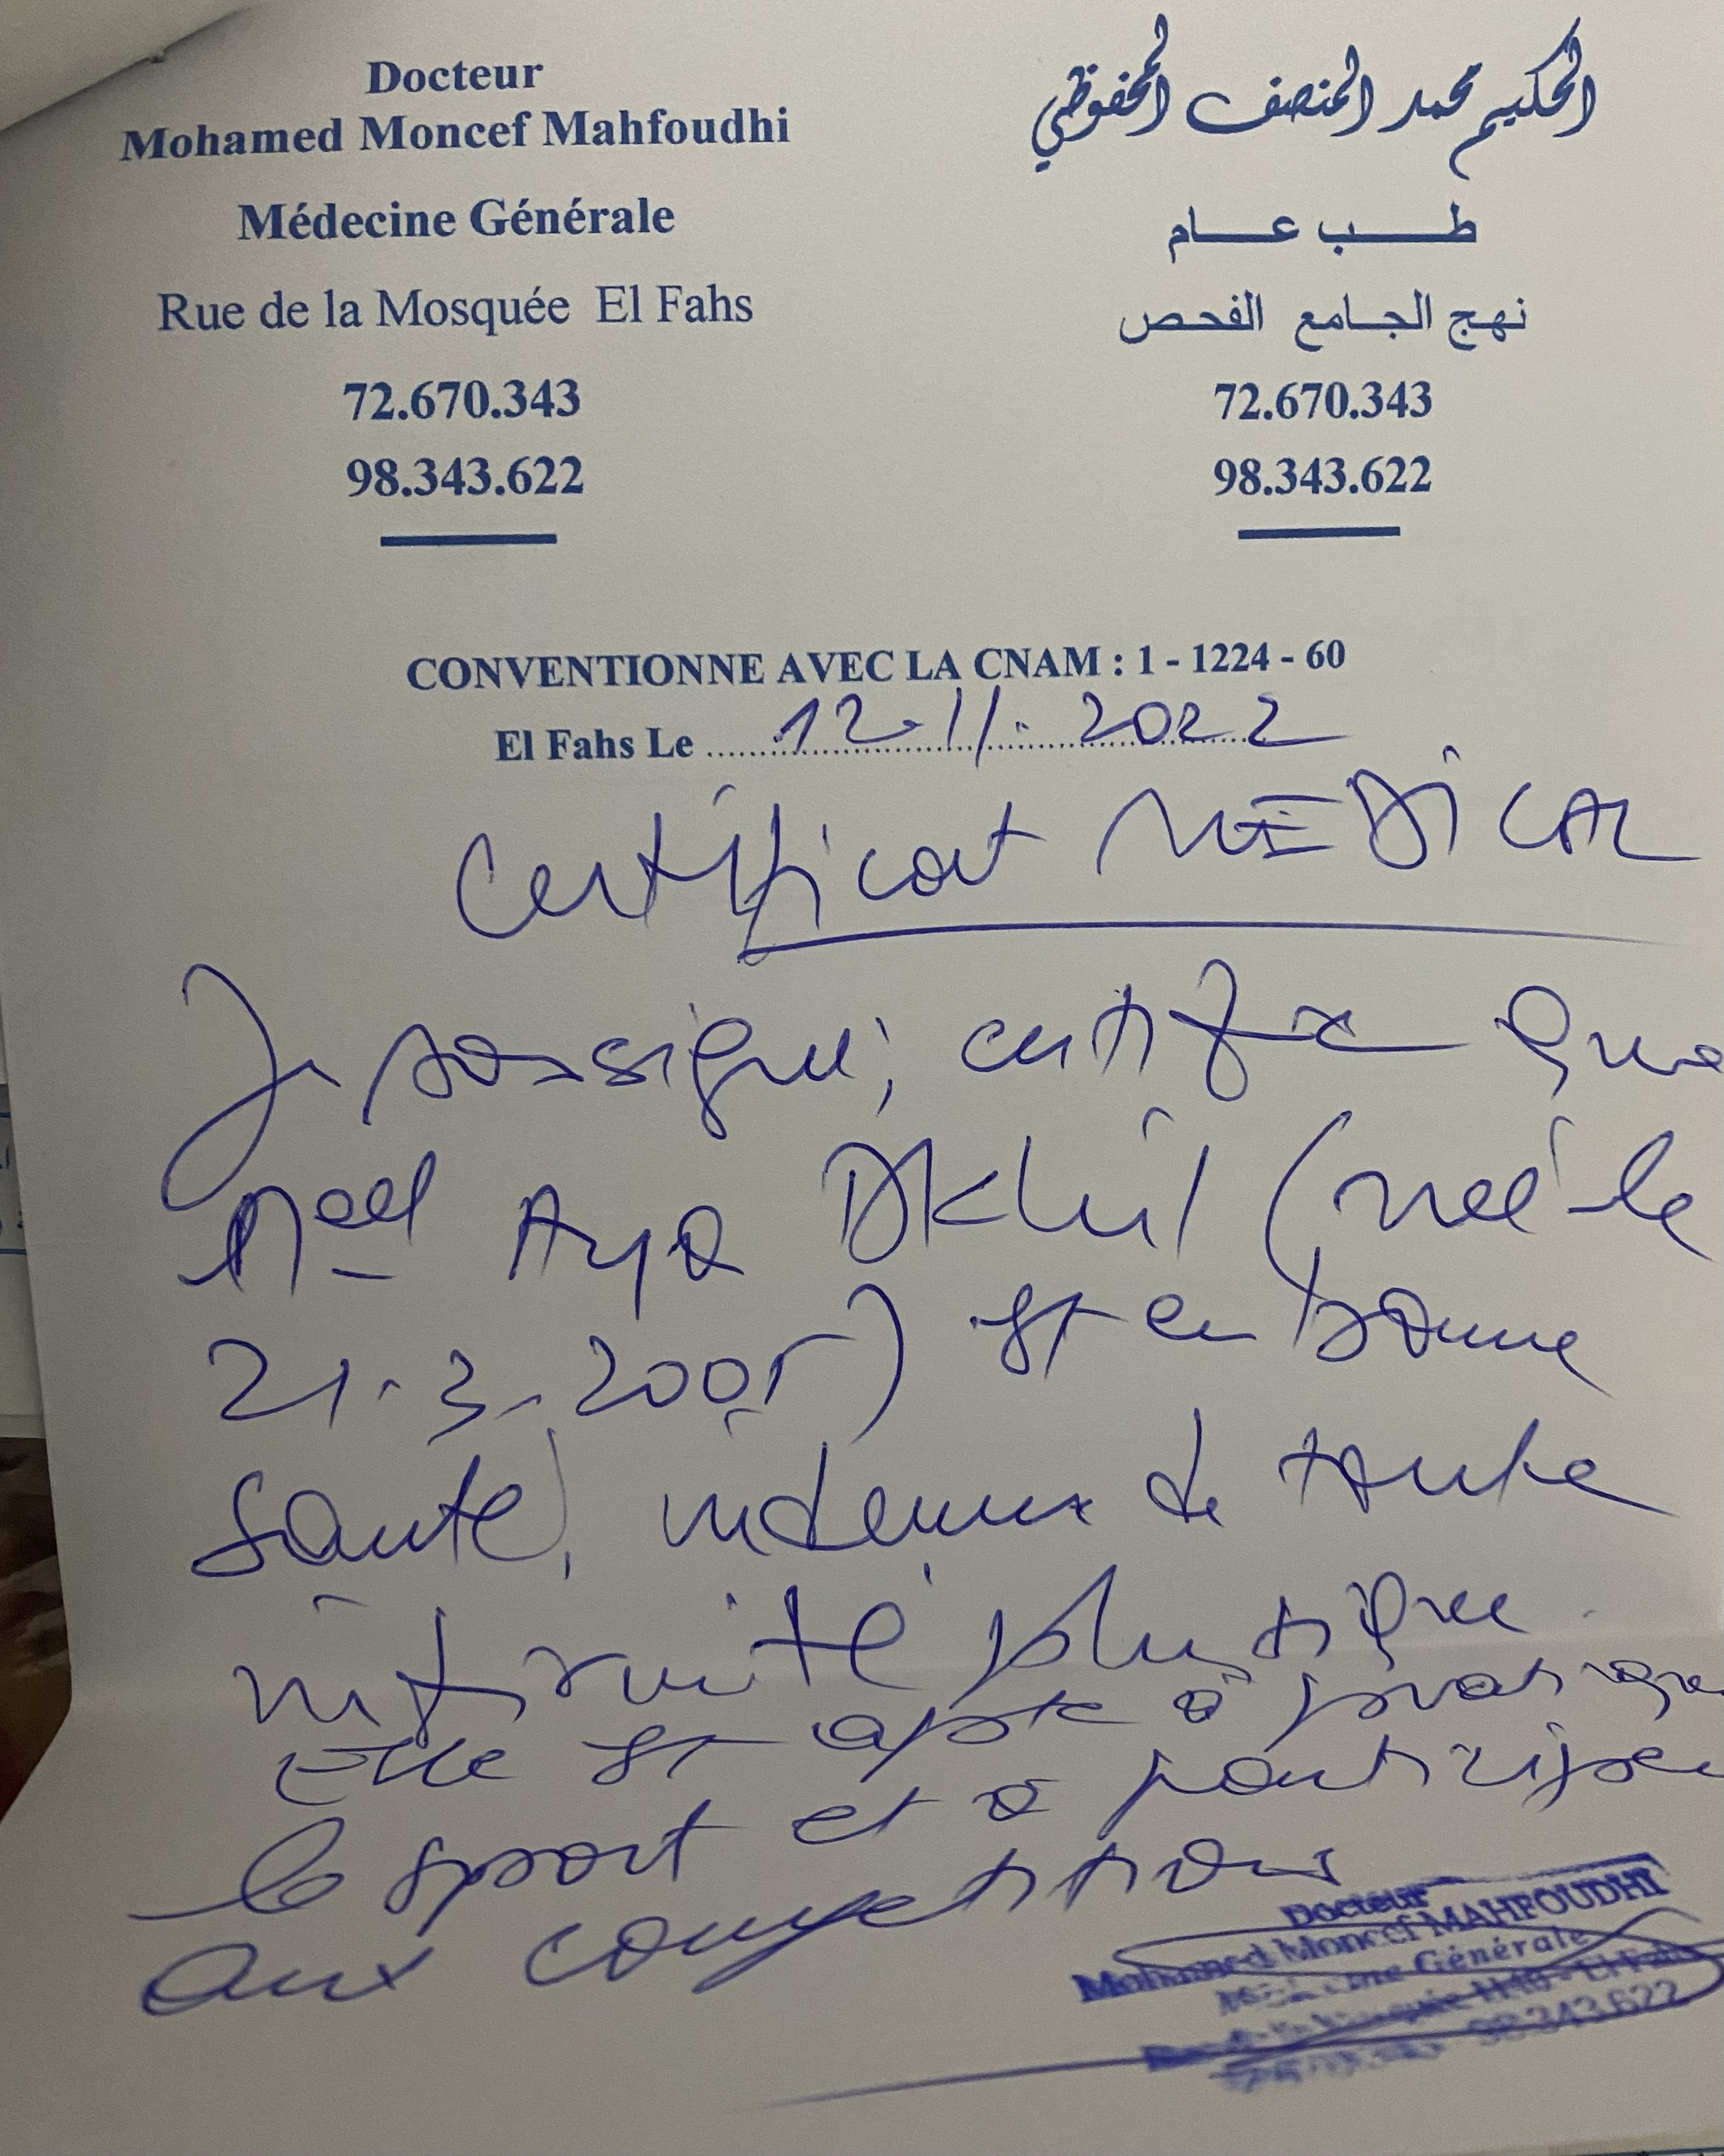 Docteur
Mohamed Moncef Mahfoudhi
Médecine Générale
Rue de la Mosquée El Fahs
72.670.343
98.343.622
الحكيم محمد المنصف المحفوظي
طب عام
نهج الجامع الفحص
72.670.343
98.343.622
CONVENTIONNE AVEC LA CNAM : 1 - 1224 - 60
El Fahs Le 12.11.2022
Certificat MEDICAL
Je soussigné, certifie que
Melle Aya DKhil (née le
21.3.2005) est en bonne
santé, indemne de toute
infirmité physique
Elle est apte à pratiquer
le sport et à participer
aux compétitions
Docteur
Mohamed Moncef MAHFOUDHI
Médecine Générale
98 343 622